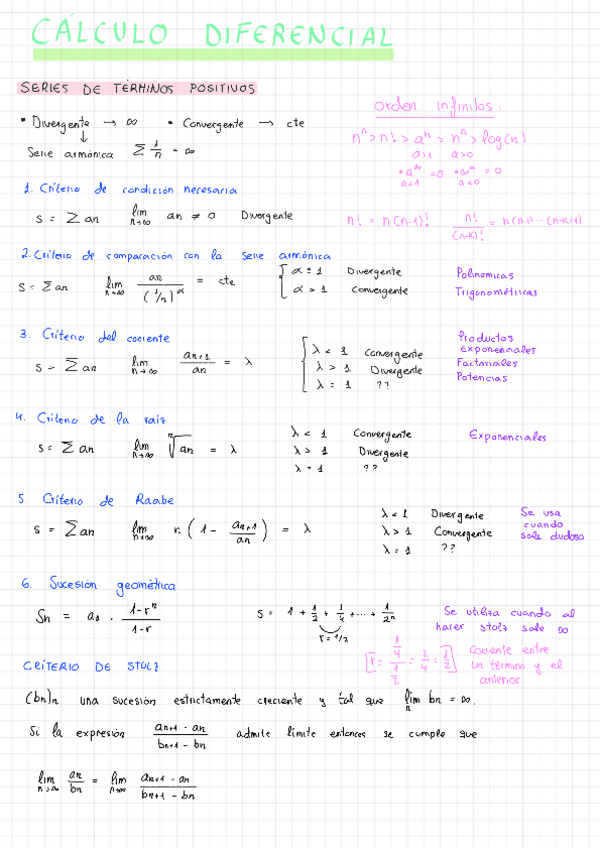 CÁLCULO DIFERENCIAL
SERIES DE TÉRMINOS POSITIVOS
• Divergente → ∞ • Convergente → cte
↓
Serie armónica Σ 1/n = ∞
Orden infinitos:
n^n > n! > a^n > n^a > log(n)
a>1 a>0
1. Criterio de condición necesaria
S = Σ an lim n→∞ an ≠ 0 Divergente
n! = n(n-1)! n!/(n-k)! = n(n-1)···(n-k+1)
2. Criterio de comparación con la serie armónica
S = Σ an lim n→∞ an/(1/n)^α = cte
α = 1 Divergente
α > 1 Convergente
Polinomicas
Trigonométricas
3. Criterio del cociente
S = Σ an lim n→∞ an+1/an = λ
λ < 1 Convergente
λ > 1 Divergente
λ = 1 ??
Productos
exponenciales
Factoriales
Potencias
4. Criterio de la raíz
S = Σ an lim n→∞ ⁿ√an = λ
λ < 1 Convergente
λ > 1 Divergente
λ = 1 ??
Exponenciales
5 Criterio de Raabe
S = Σ an lim n→∞ n·(1 - an+1/an) = λ
λ < 1 Divergente
λ > 1 Convergente
λ = 1 ??
Se usa
cuando
sale dudoso
6. Sucesión geométrica
Sn = a1 · 1-r^n/1-r
S = 1 + 1/2 + 1/4 + ... + 1/2^n
r = 1/2
Se utiliza cuando al
hacer stolz sale ∞
[r = (1/4)/(1/2) = 2/4 = 1/2]
Cociente entre
un término y el
anterior.
CRITERIO DE STOLZ
(bn)n una sucesión estrictamente creciente y tal que lim n bn = ∞.
Si la expresión an+1 - an/bn+1 - bn admite límite entonces se cumple que
lim n→∞ an/bn = lim n→∞ an+1 - an/bn+1 - bn